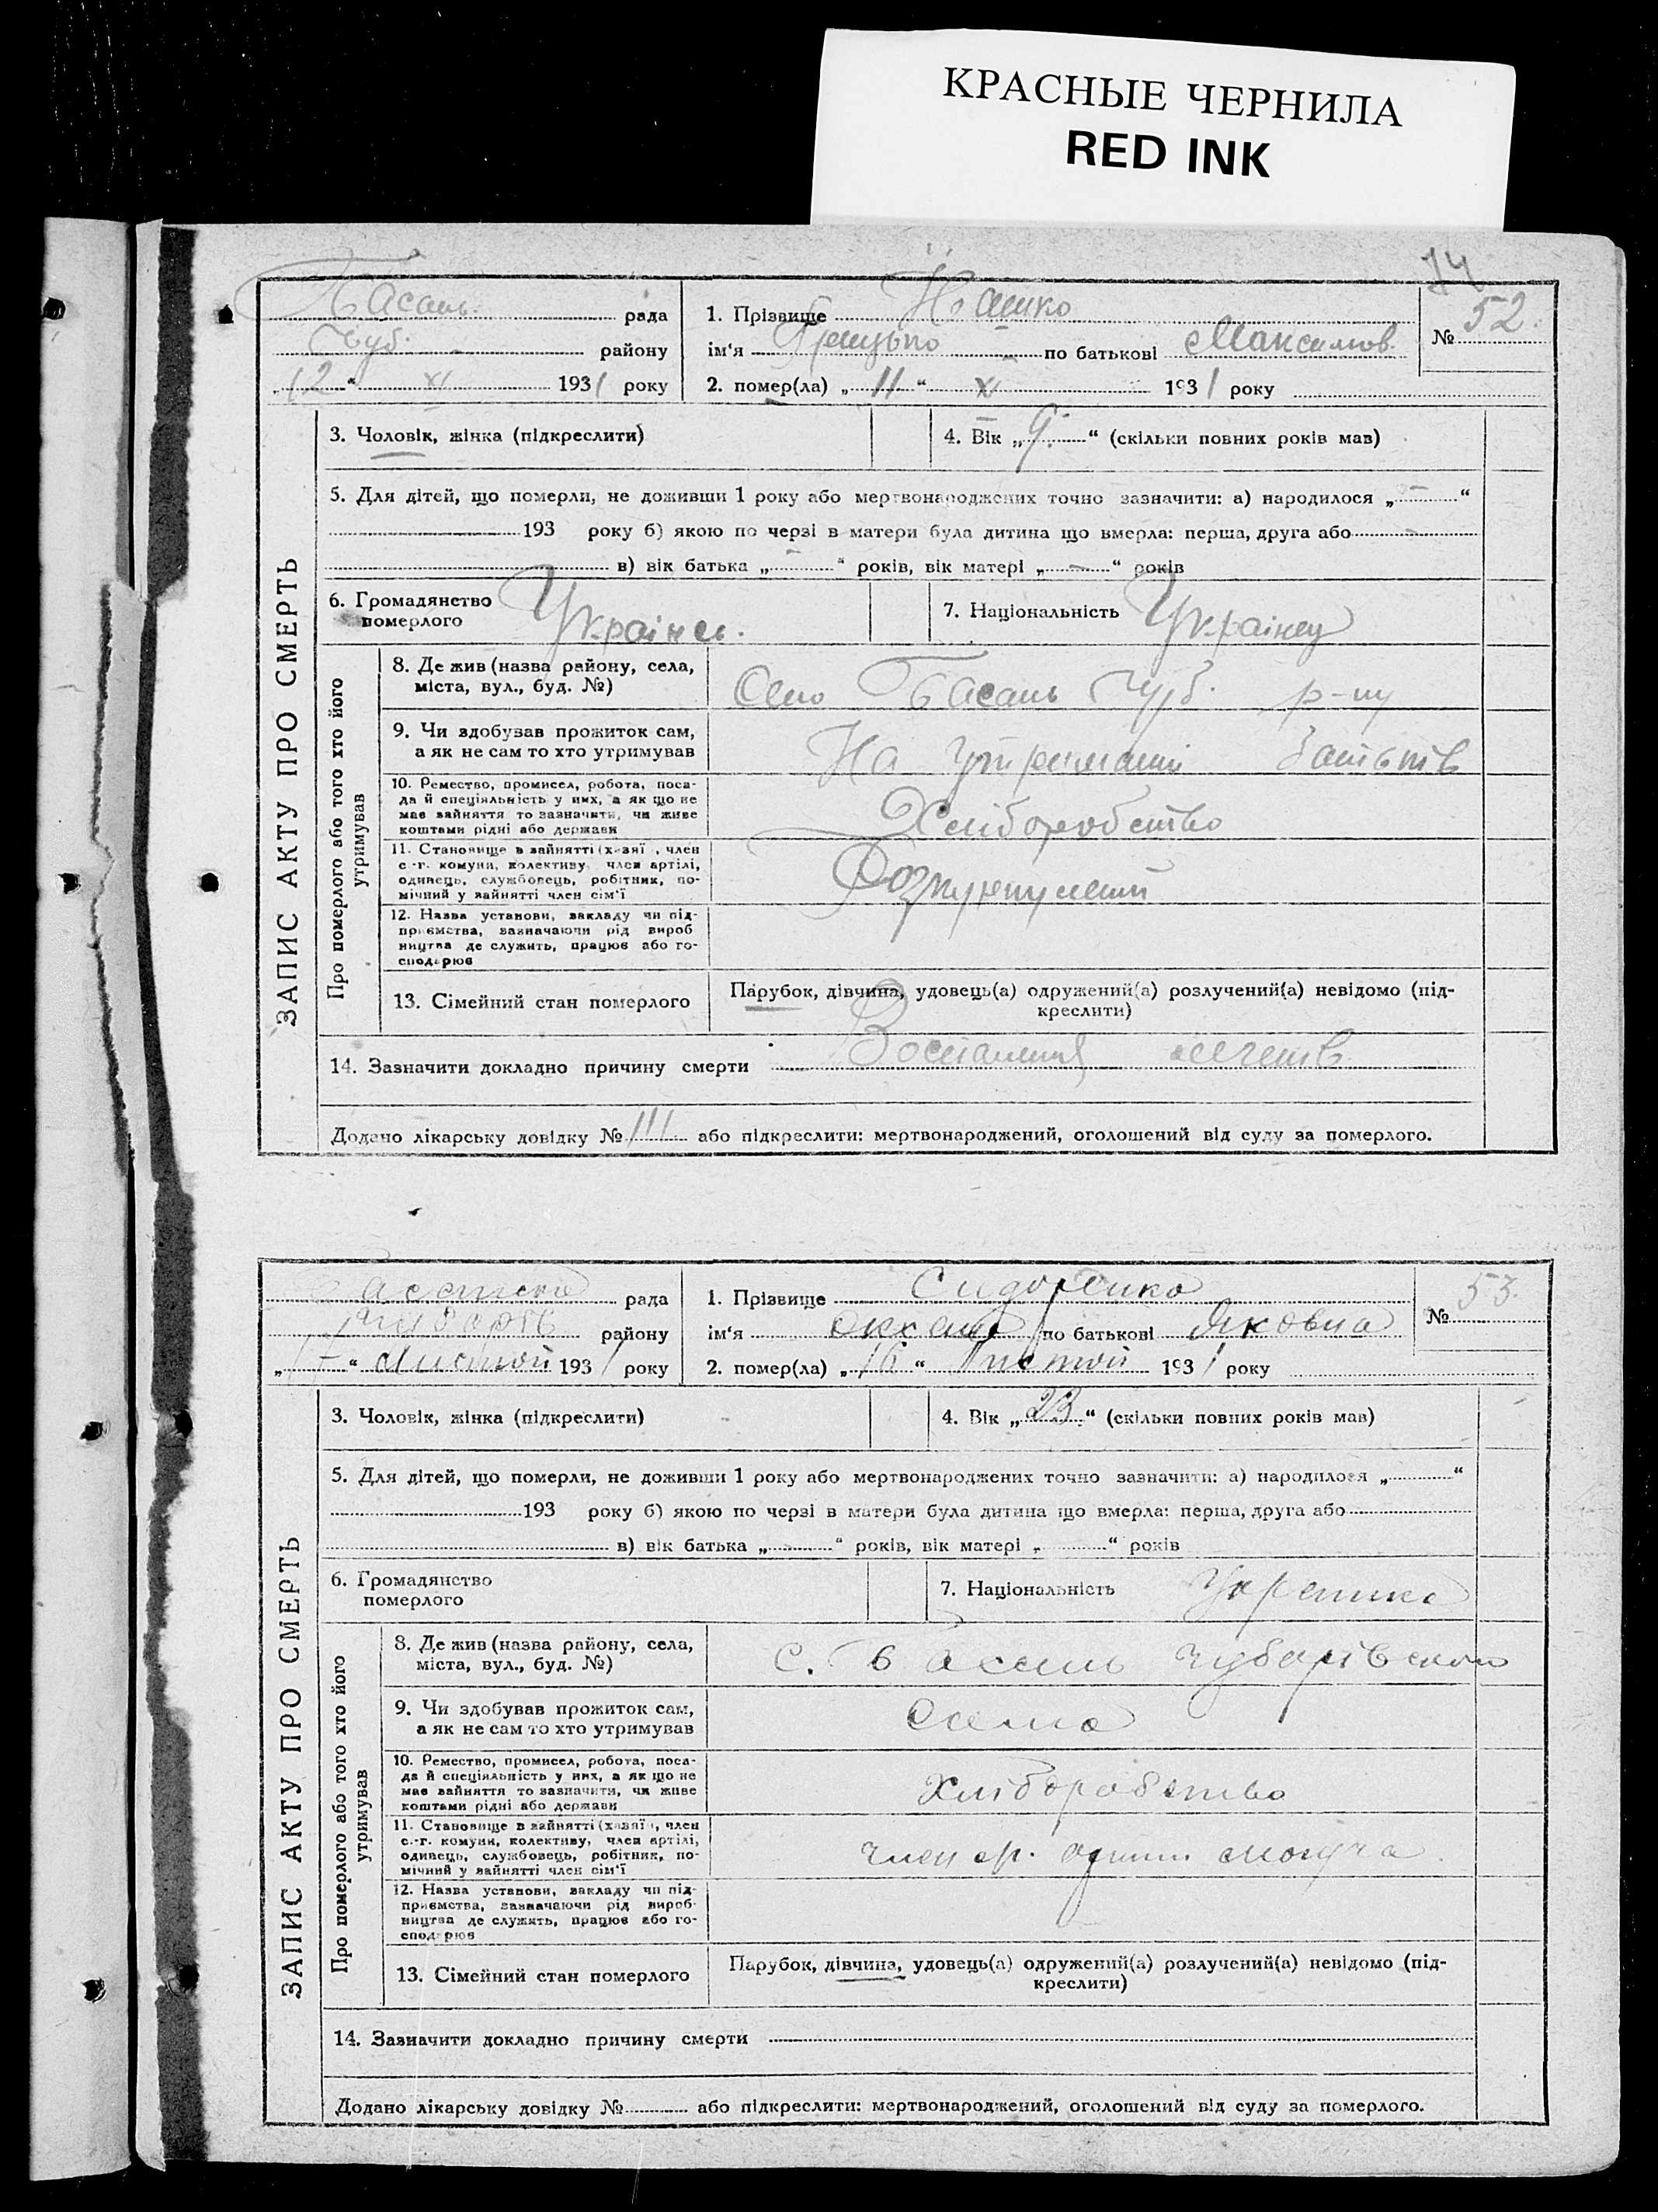 КРАСНЫЕ ЧЕРНИЛА
RED INK
74
Басань рада
Чуб. району
„12“ XI 1931 року
1. Прізвище Ивашко
ім‘я Грицько по батькові Максимов.
2. помер(ла) „11“ XI 1931 року
№ 52.
ЗАПИС АКТУ ПРО СМЕРТЬ
3. Чоловік, жінка (підкреслити)
4. Вік „9“ (скільки повних років мав)
5. Для дітей, що померли, не доживши 1 року або мертвонароджених точно зазначити: а) народилося „ - “
193 року б) якою по черзі в матери була дитина що вмерла: перша, друга або -
в) вік батька „ - “ років, вік матері „ - “ років
6. Громадянство померлого Українсь.
7. Національність Українец
Про померлого або того хто його утримував
8. Де жив (назва району, села,
міста, вул., буд. №)
Село Басань Чуб. р-ну
9. Чи здобував прожиток сам,
а як не сам то хто утримував
На утриманні батьків
10. Ремество, промисел, робота, поса-
да й спеціяльність у них, а як що не
має зайняття то зазначити, чи живе
коштами рідні або держави
Хліборобство
11. Становище в зайнятті (хазяї , член
с.-г. комуни, колективу, член артілі,
одинець, службовець, робітник, по-
мічний у зайнятті член сім‘ї
Розкуркулений
12. Назва установи, закладу чи під-
приємства, зазначаючи рід вироб
ництва де служить, працює або го-
сподарює
13. Сімейний стан померлого
Парубок, дівчина, удовець(а) одружений(а) розлучений(а) невідомо (під-
креслити)
14. Зазначити докладно причину смерти
Додано лікарську довідку № 111 або підкреслити: мертвонароджений, оголошений від суду за померлого.
Басанська рада
Чубарів району
„17“ Листоп 1931 року
1. Прізвище Сидоренко
ім‘я по батькові Яковна
2. помер(ла) „16“ Листоп 1931 року
№ 53.
ЗАПИС АКТУ ПРО СМЕРТЬ
3. Чоловік, жінка (підкреслити)
4. Вік „23“ (скільки повних років мав)
5. Для дітей, що померли, не доживши 1 року або мертвонароджених точно зазначити: а) народилося „ “
193 року б) якою по черзі в матери була дитина що вмерла: перша, друга або
в) вік батька „ “ років, вік матері „ “ років
6. Громадянство
померлого
7. Національність
Про померлого або того хто його утримував
8. Де жив (назва району, села,
міста, вул., буд. №)
с. Басань Чубарівского
9. Чи здобував прожиток сам,
а як не сам то хто утримував
Сама
10. Ремество, промисел, робота, поса-
да й спеціяльність у них, а як що не
має зайняття то зазначити, чи живе
коштами рідні або держави
Хліборобство
11. Становище в зайнятті (хазяї , член
с.-г. комуни, колективу, член артілі,
одинець, службовець, робітник, по-
мічний у зайнятті член сім‘ї
член
12. Назва установи, закладу чи під-
приємства, зазначаючи рід вироб-
ництва де служить, працює або го-
сподарює
13. Сімейний стан померлого
Парубок, дівчина, удовець(а) одружений(а) розлучений(а) невідомо (під-
креслити)
14. Зазначити докладно причину смерти
Додано лікарську довідку № або підкреслити: мертвонароджений, оголошений від суду за померлого.